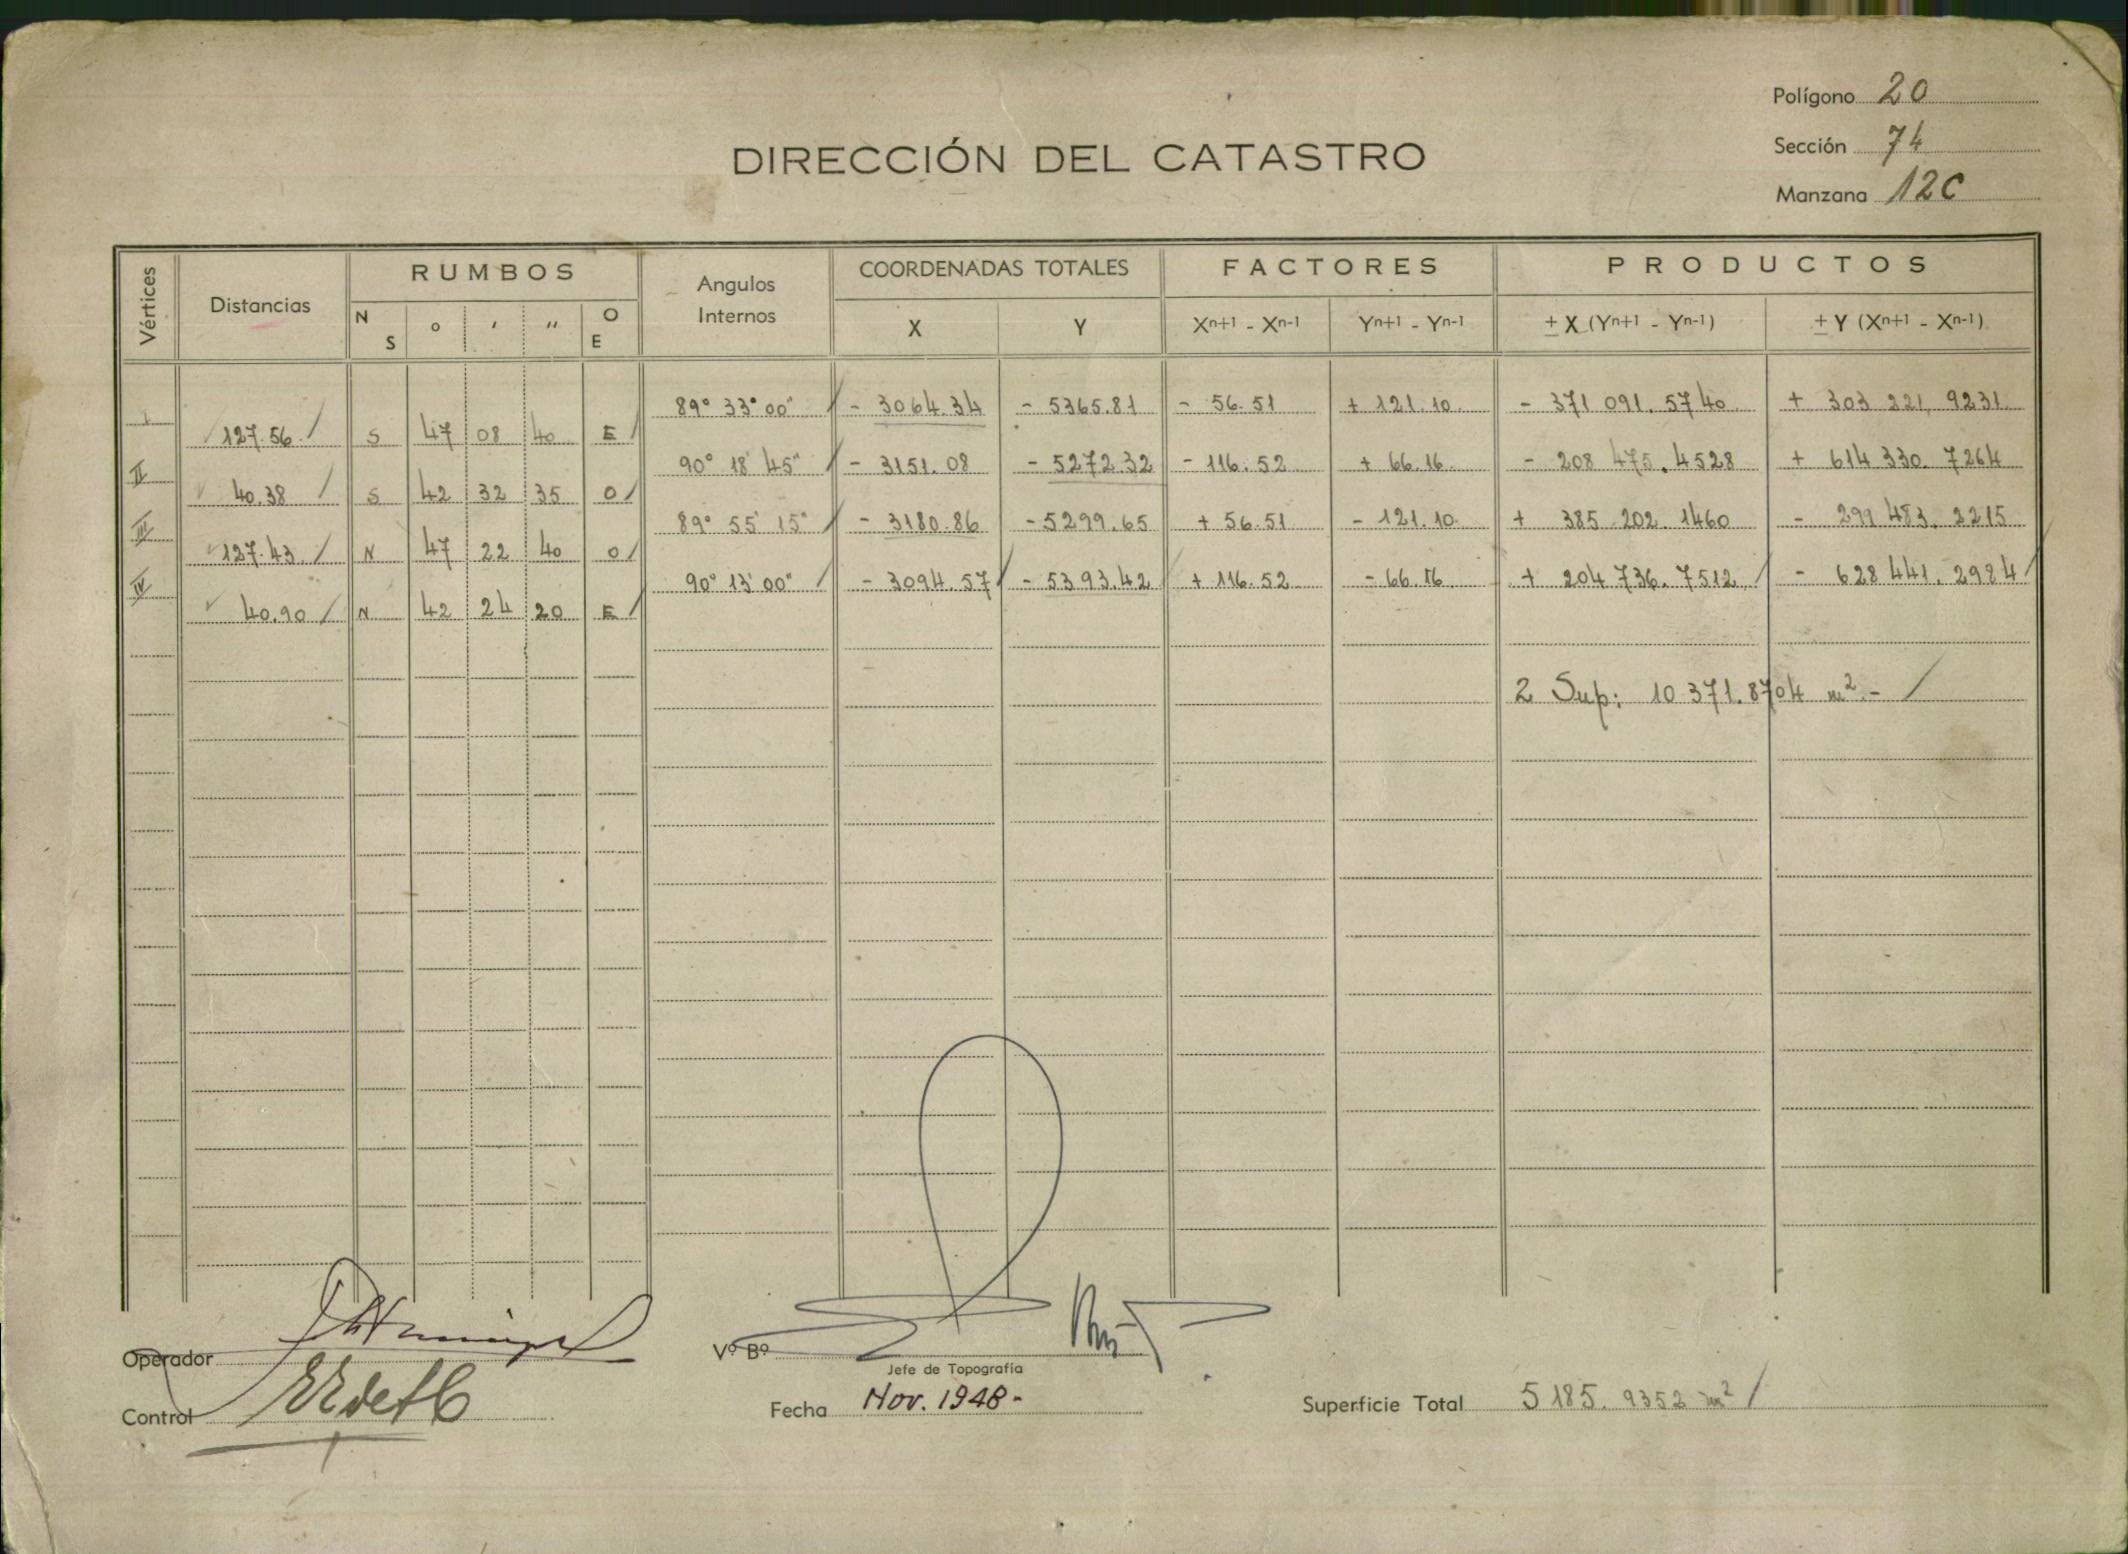 Polígono 20
Sección 74
Manzana 12C
DIRECCIÓN DEL CATASTRO
Vértices Distancias RUMBOS Angulos Internos COORDENADAS TOTALES FACTORES PRODUCTOS
N S o ' " O E X Y Xn+1 - Xn-1 Yn+1 - Yn-1 ± X (Yn+1 - Yn-1) ± Y (Xn+1 - Xn-1)
I 89° 33° 00" - 3064.34 - 5365.81 - 56.51 + 121.10 - 371 091.5740 + 303 221,9231
127.56 S 47 08 40 E
II 90° 18' 45" - 3151.08 - 5272 32 - 116.52 + 66.16 - 208 475.4528 + 614 330.7264
40.38 S 42 32 35 O
III 89° 55' 15" - 3180.86 - 5299.65 + 56.51 - 121.10 + 385 202.1460 - 299 483.2215
127.43 N 47 22 40 O
IV 90° 13' 00" - 3094.57 - 5393.42 + 116.52 - 66.16 + 204 736.7512 - 628 441.2984
40.90 N 42 24 20 E
2 Sup: 10 371.8704 m² -
Operador
Vº Bº
Jefe de Topografía
Control
Fecha Nov. 1948-
Superficie Total 5 185.9352 m²